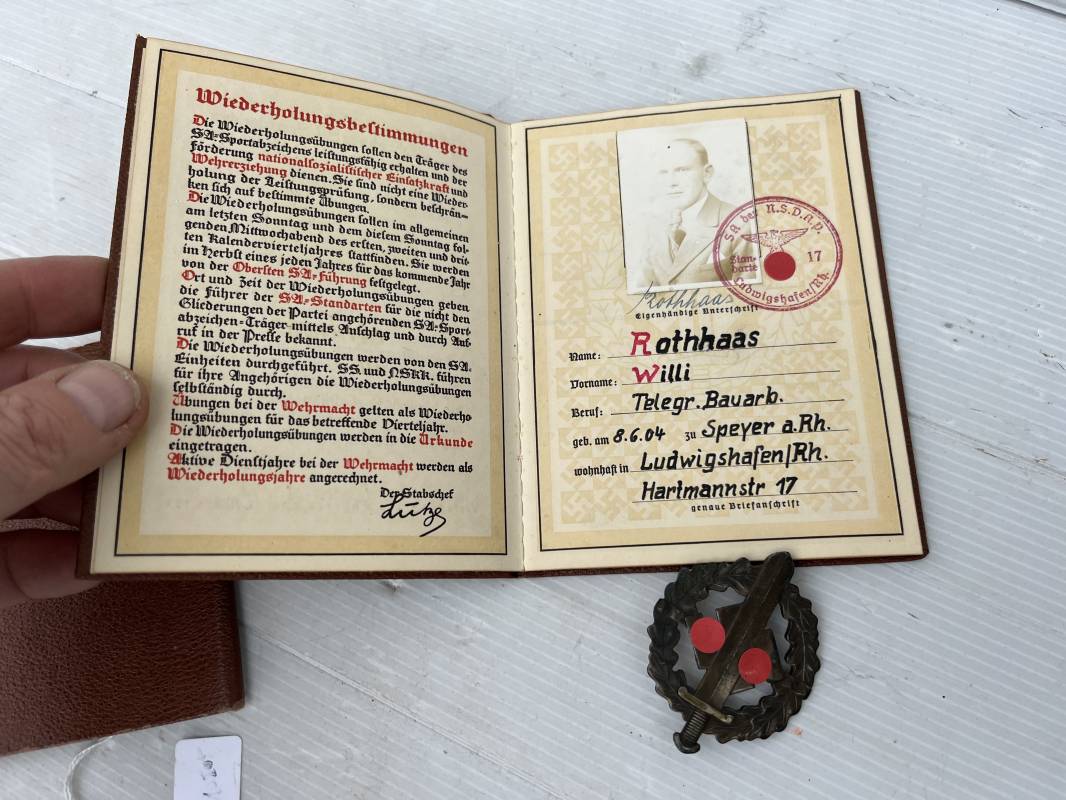 Wiederholungsbestimmungen
Die Wiederholungsübungen sollen den Träger des
SA-Sportabzeichens leistungsfähig erhalten und der
förderung nationalsozialistischer Einsatzkraft und
Wehrerziehung dienen. Sie sind nicht eine Wieder-
holung der Leistungsprüfung, sondern beschrän-
ken sich auf bestimmte Übungen.
Die Wiederholungsübungen sollen im allgemeinen
am letzten Sonntag und dem diesem Sonntag fol-
genden Mittwochabend des ersten, zweiten und drit-
ten Kalendervierteljahres stattfinden. Sie werden
im Herbst eines jeden Jahres für das kommende Jahr
von der Obersten SA-Führung festgelegt.
Ort und Zeit der Wiederholungsübungen geben
die Führer der SA-Standarten für die nicht den
Gliederungen der Partei angehörenden SA-Sport-
abzeichen-Träger mittels Anschlag und durch Auf-
ruf in der Presse bekannt.
Die Wiederholungsübungen werden von den SA-
Einheiten durchgeführt. SS und NSKK führen
für ihre Angehörigen die Wiederholungsübungen
selbständig durch.
Übungen bei der Wehrmacht gelten als Wiederho-
lungsübungen für das betreffende Vierteljahr.
Die Wiederholungsübungen werden in die Urkunde
eingetragen.
Aktive Dienstjahre bei der Wehrmacht werden als
Wiederholungsjahre angerechnet.
Der Stabschef
Lutze
SA der N.S.D.A.P.
Standarte 17
Ludwigshafen/Rh.
Rothhaas
Eigenhändige Unterschrift
Name: Rothhaas
Vorname: Willi
Beruf: Telegr. Bauarb.
geb. am 8.6.04 zu Speyer a.Rh.
wohnhaft in Ludwigshafen/Rh.
Hartmannstr 17
genaue Briefanschrift